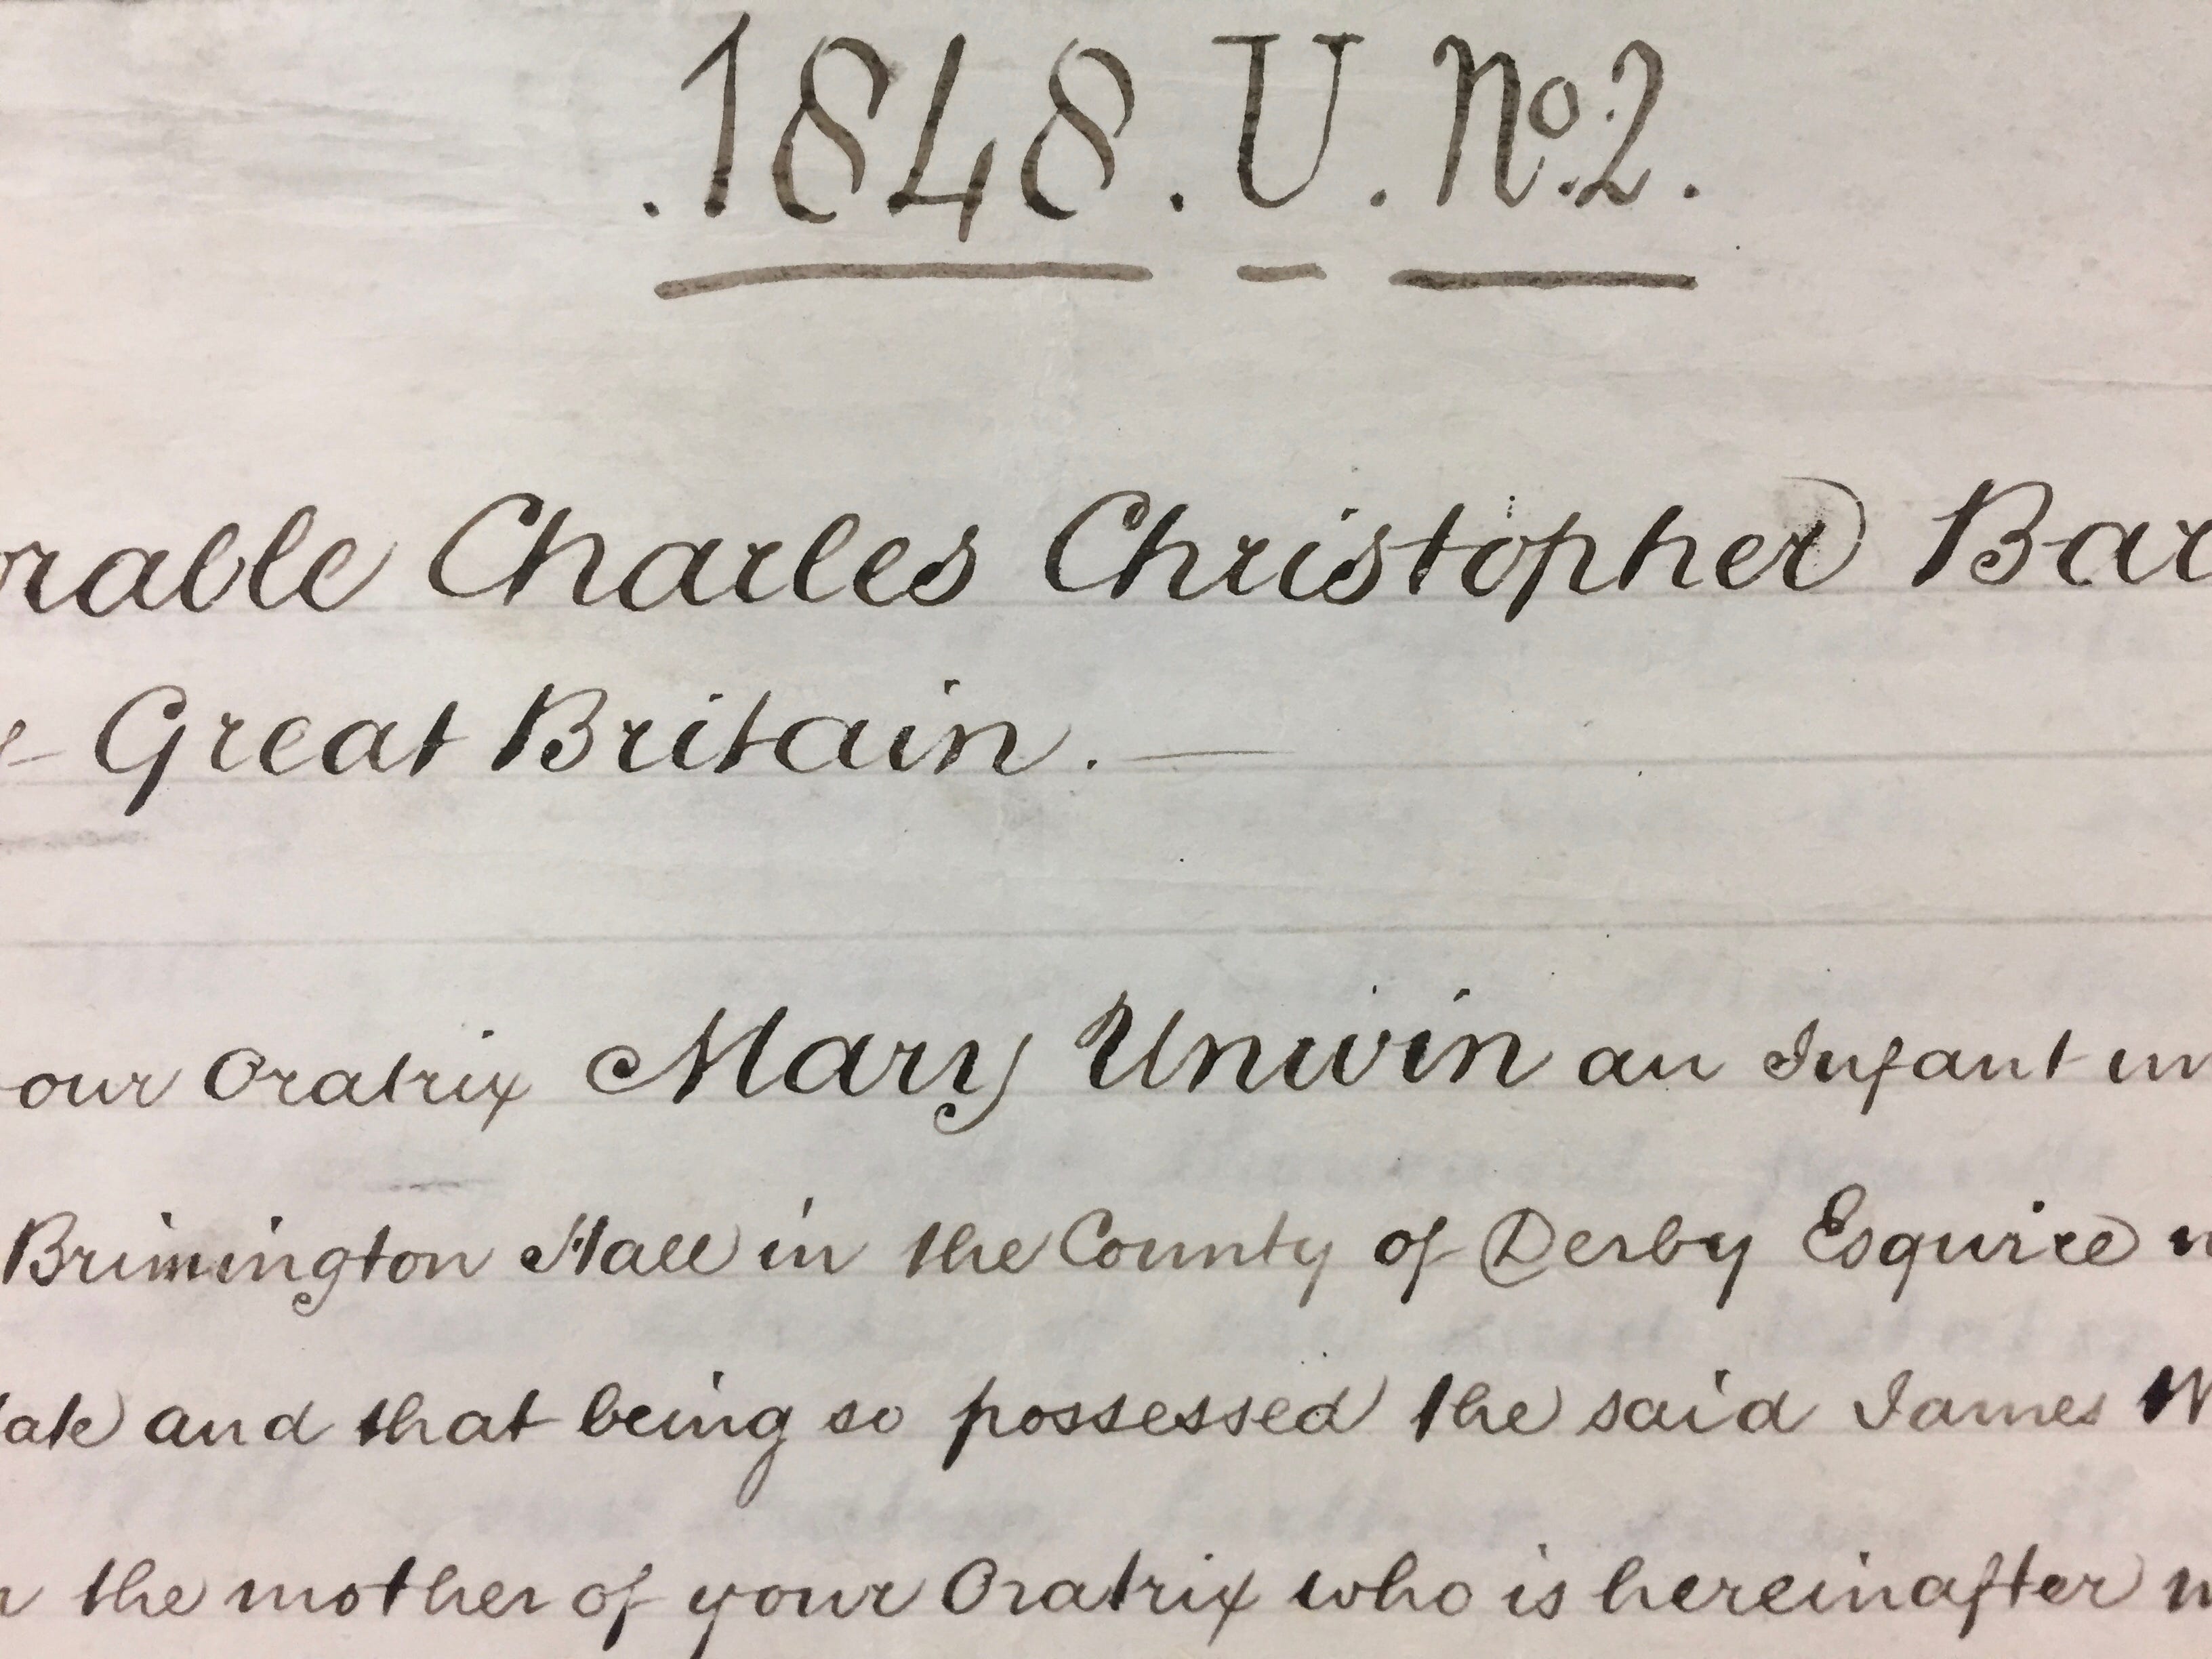 .1848.U.No.2.
rable Charles Christopher Bar
Great Britain.
our Oratrix Mary Unwin an Infant
Brimington Hall in the County of Derby Esquire
ate and that being so possessed the said James W
the mother of your Oratrix who is hereinafter